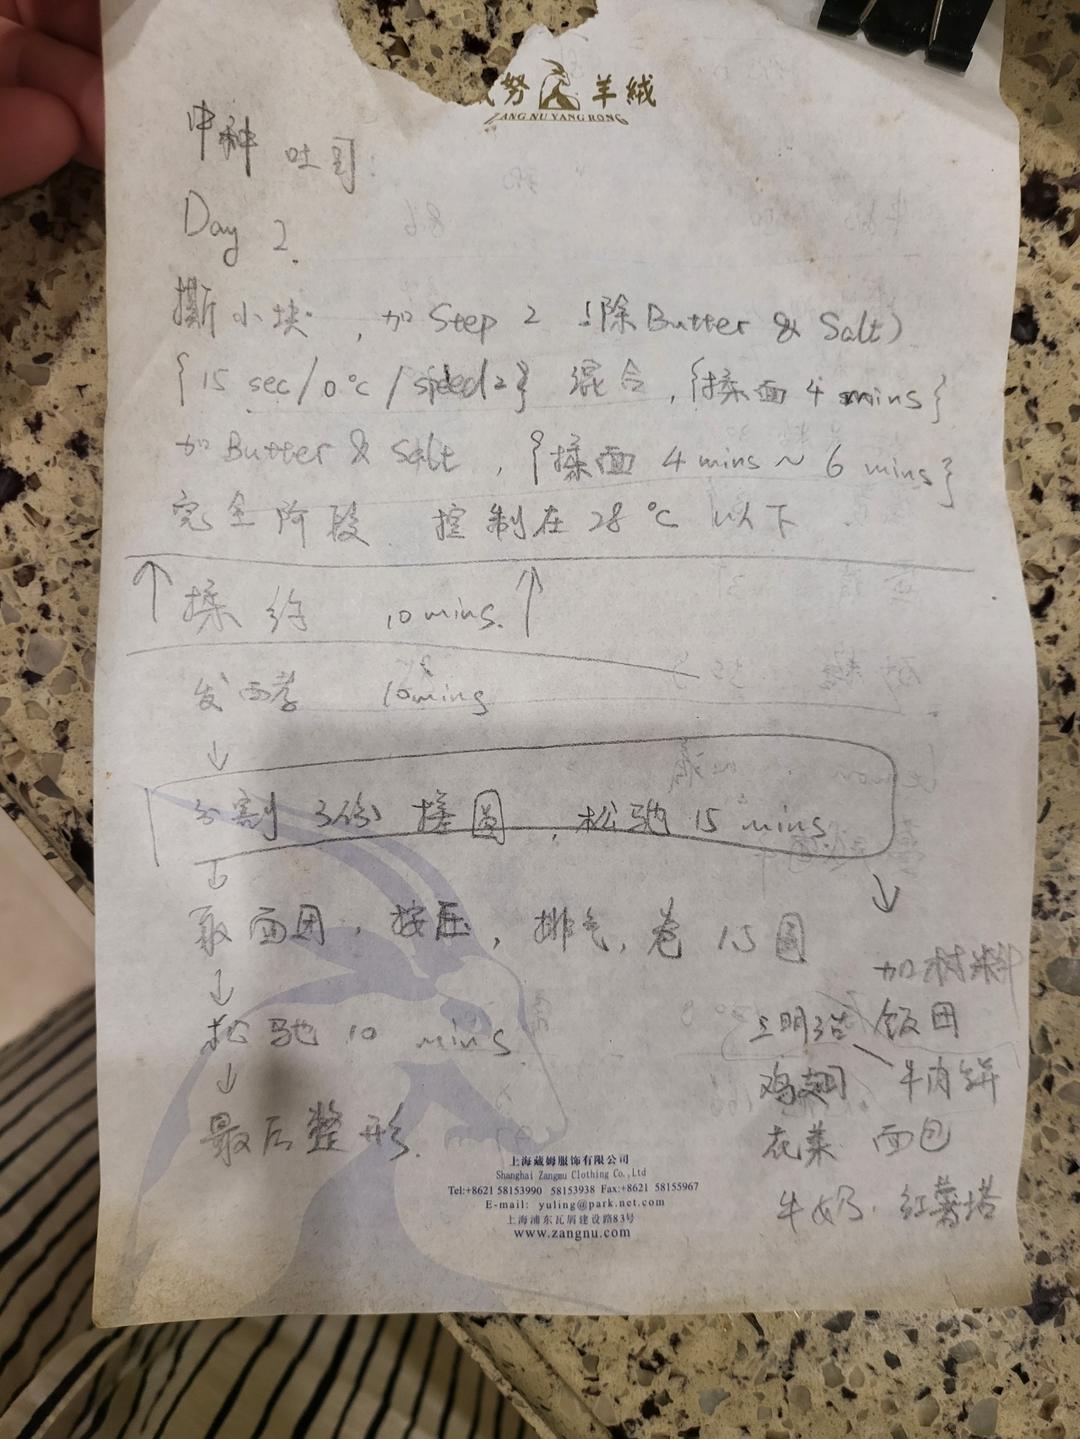 努 羊絨
ZANG NU YANG RONG
中种 吐司
Day 2.
撕小块, 加 Step 2 (除 Butter & Salt)
{15 sec/0℃/speed 2} 混合, {揉面 4 mins}
加 Butter & Salt, {揉面 4 mins ~ 6 mins}
完全阶段 控制在 28℃ 以下.
↑ 揉 约 10 mins. ↑
发面 10 mins
↓
分割 3份 揉圆, 松驰 15 mins.
↓
取面团, 按压, 排气, 卷 1.5 圆
↓
松驰 10 mins.
↓
最后整形.
↓
加材料
三明治 饭团
鸡翅 牛肉饼
花菜 面包
牛奶. 红薯塔
上海藏姆服饰有限公司
Shanghai Zangmu Clothing Co.,Ltd
Tel:+8621 58153990 58153938 Fax:+8621 58155967
E-mail: yuling@park.net.com
上海浦东瓦屑建设路83号
www.zangnu.com